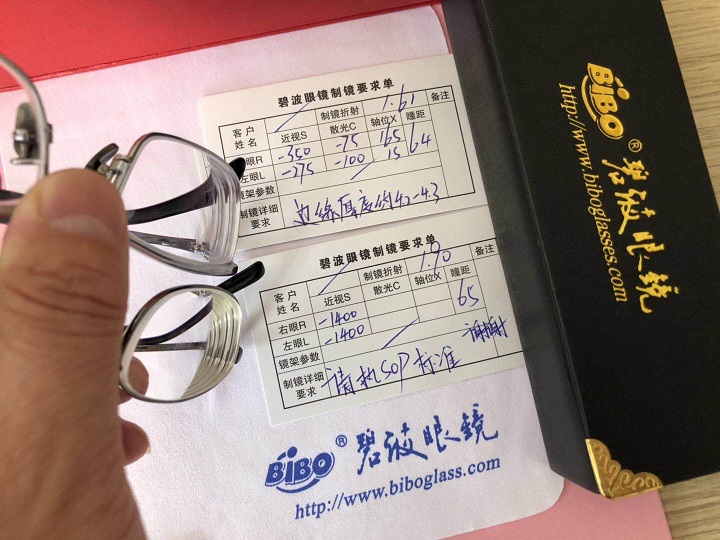 碧波眼镜制镜要求单
客户姓名 近视S 制镜折射 散光C 1.61 轴位X 瞳距 备注
眼R -350 -75 165 64
左眼L -175 -100 15
镜架参数
制镜详细要求 边缘厚度约4.2-4.3
碧波眼镜制镜要求单
客户姓名 近视S 制镜折射 散光C 1.90 轴位X 瞳距 备注
右眼R -1400 65
左眼L -1400
镜架参数
制镜详细要求 请执SOP标准 谢谢
BiBO® 碧波眼镜
http://www.biboglass.com
BiBO® 碧波眼镜
http://www.biboglasses.com